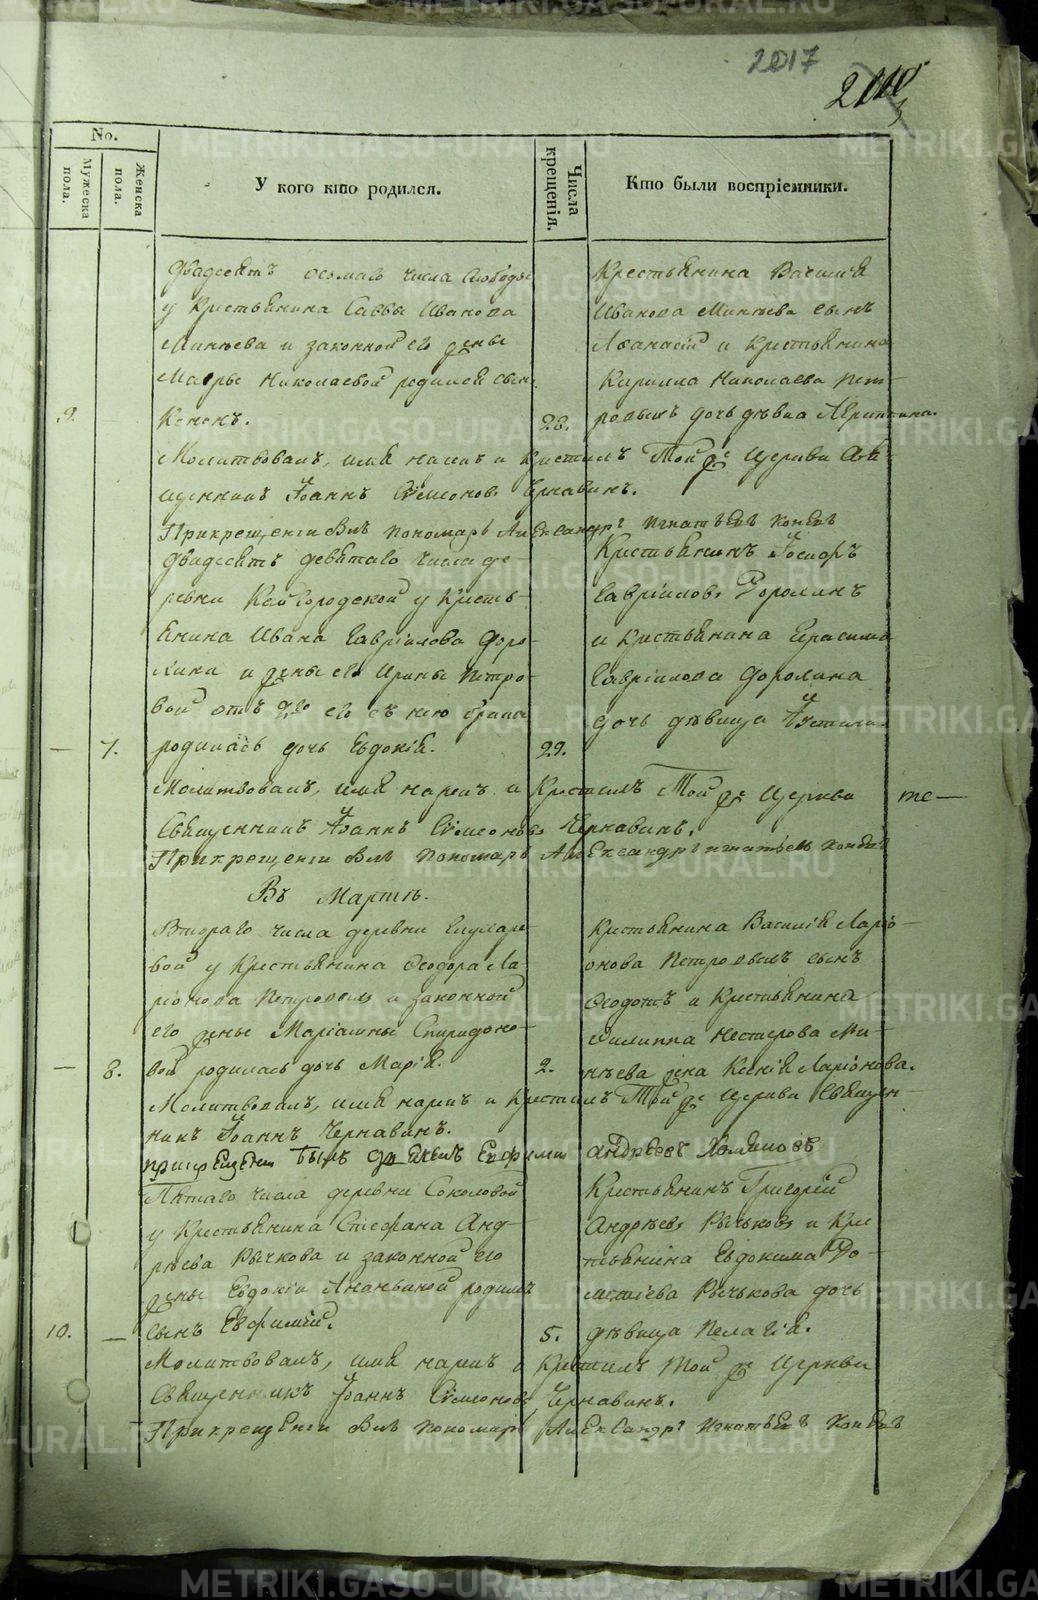 2017
No.
Мужеска пола.
Женска пола.
У кого кто родился.
Числа крещенія.
Кто были воспріемники.
Двадсять осмаго числа Слободы
у Крестьянина Саввы Иванова
Минѣева и законной его жены
Мавры Николаевой родился сынъ
9. Кононъ. 28.
Крестьянина Василія
Иванова Минѣева сынъ
Афанасій и Крестьянина
Кирилла Николаева Пет-
ровыхъ дочь дѣвица
Молитвовалъ, имя нарекъ и Крестилъ Той же Церкви Свя-
щенникъ Іоаннъ Симеоновъ Чернавинъ.
При крещеніи былъ пономарь Александръ Игнатьевъ
Двадсять девятаго числа де-
ревни Кайгородской у Кресть-
янина Ивана Гавріилова Форо-
лина и жены его Ирины Петро-
вой отъ 2го его съ нею брака
— 7. родилась дочь Евдокія. 29.
Крестьянинъ Іосифъ
Гавріиловъ Форолинъ
и Крестьянина Герасима
Гавріилова Форолина
дочь дѣвица
Молитвовалъ, имя нарекъ и Крестилъ Той же Церкви те—
Священникъ Іоаннъ Симеоновъ Чернавинъ.
При крещеніи былъ пономарь Александръ Игнатьевъ
Въ Мартѣ.
Втораго числа деревни
вой у Крестьянина Феодора Ла-
ріонова Петровыхъ и законной
его жены Маріамны Спиридоно-
— 8. вой родилась дочь Марія. 2.
Крестьянина Василія Ларіо-
онова Петровыхъ сынъ
Феодотъ и Крестьянина
Филиппа Нестерова Ми-
нѣева жена Ксенія Ларіонова.
Молитвовалъ, имя нарекъ и Крестилъ Той же Церкви Священ-
никъ Іоаннъ Чернавинъ.
При крещеніи былъ Андреевъ
Пятаго числа деревни Соколовой
у Крестьянина Стефана Анд-
рѣева Рычкова и законной его
жены Евдокіи Ананьиной родился
10. — сынъ Евфимій. 5.
Крестьянинъ Григорій
Андрѣевъ Рычьковъ и Крес-
тьянина Евдокима До-
метіева Рычькова дочь
дѣвица Пелагія.
Молитвовалъ, имя нарекъ и Крестилъ той же Церкви
Священникъ Іоаннъ Симеоновъ Чернавинъ.
При крещеніи былъ пономарь Александръ Игнатьевъ
METRIKI.GASO-URAL.RU